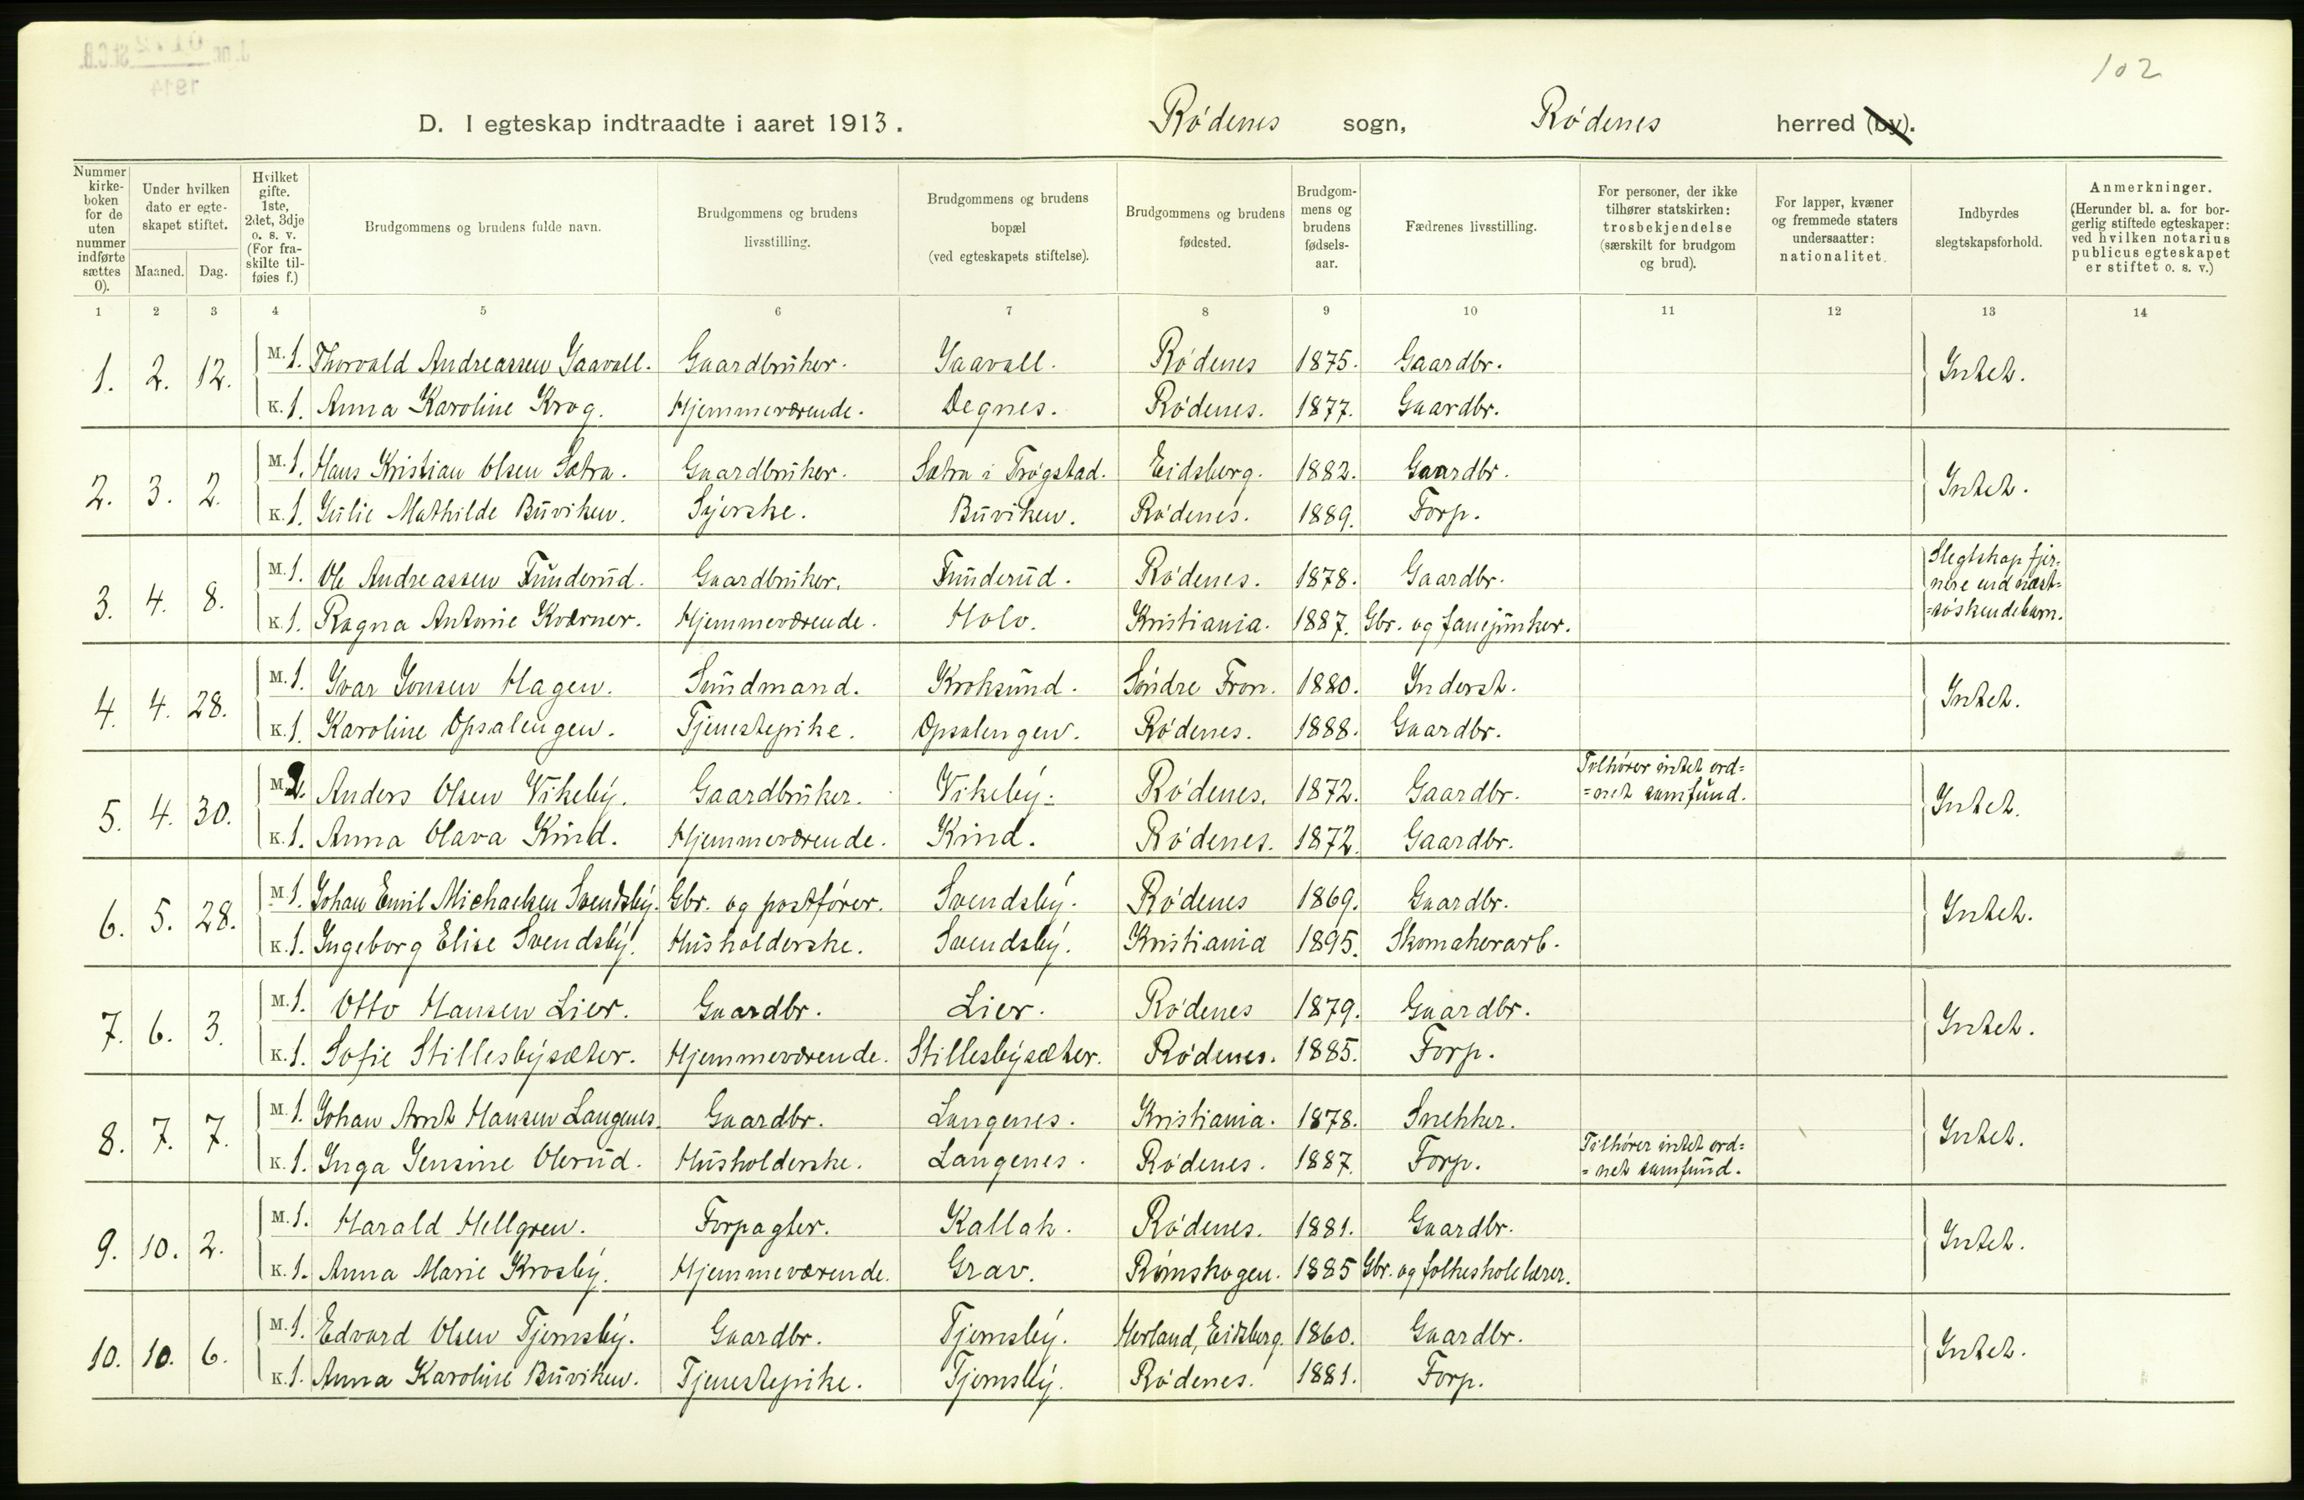 102
D. I egteskap indtraadte i aaret 1913. Rødenes sogn, Rødenes herred (by).
Nummer kirke-boken for de uten nummer indførte sættes 0).
Under hvilken dato er egte-skapet stiftet.
Maaned. Dag.
Hvilket gifte. 1ste, 2det, 3dje o. s. v. (For fra-skilte til-føies f.)
Brudgommens og brudens fulde navn.
Brudgommens og brudens livsstilling.
Brudgommens og brudens bopæl (ved egteskapets stiftelse).
Brudgommens og brudens fødested.
Brudgom-mens og brudens fødsels-aar.
Fædrenes livsstilling.
For personer, der ikke tilhører statskirken: trosbekjendelse (særskilt for brudgom og brud).
For lapper, kvæner og fremmede staters undersaatter: nationalitet.
Indbyrdes slegtskapsforhold.
Anmerkninger. (Herunder bl. a. for bor-gerlig stiftede egteskaper: ved hvilken notarius publicus egteskapet er stiftet o. s. v.)
1 2 3 4 5 6 7 8 9 10 11 12 13 14
1. 2. 12. M. 1. Thorvald Andreassen Gaavall. Gaardbruker. Gaavall. Rødenes 1875. Gaardbr. Intet.
K. 1. Anna Karoline Krog. Hjemmeværende. Degnes. Rødenes. 1877. Gaardbr.
2. 3. 2. M. 1. Hans Kristian Olsen Sætra. Gaardbruker. Sætra i Trøgstad. Eidsberg. 1882. Gaardbr. Intet.
K. 1. Julie Mathilde Buviken. Syerske. Buviken. Rødenes. 1889. Forp.
3. 4. 8. M. 1. Ole Andreassen Funderud. Gaardbruker. Funderud. Rødenes. 1878. Gaardbr. Slegtskap fjer-nere end næst-=søskendebarn.
K. 1. Ragna Antonie Kværner. Hjemmeværende. Holo. Kristiania. 1887. Gbr. og fanejunker.
4. 4. 28. M. 1. Ivar Jonsen Hagen. Sundmand. Kroksund. Søndre Fron. 1880. Inderst. Intet.
K. 1. Karoline Opsalengen. Tjenestepike. Opsalengen. Rødenes. 1888. Gaardbr.
5. 4. 30. M. 2. Anders Olsen Vikeby. Gaardbruker. Vikeby. Rødenes. 1872. Gaardbr. Tilhører intet ord==net samfund. Intet.
K. 1. Anna Olava Kind. Hjemmeværende. Kind. Rødenes. 1872. Gaardbr.
6. 5. 28. M. 1. Johan Emil Michaelsen Svendsby. Gbr. og postfører. Svendsby. Rødenes 1869. Gaardbr. Intet.
K. 1. Ingeborg Elise Svendsby. Husholderske. Svendsby. Kristiania 1895. Skomakerarb.
7. 6. 3. M. 1. Otto Hansen Lier. Gaardbr. Lier. Rødenes 1879. Gaardbr. Intet.
K. 1. Sofie Stillesbysæter. Hjemmeværende. Stillesbysæter. Rødenes. 1885. Forp.
8. 7. 7. M. 1. Johan Arnt Hansen Langenes. Gaardbr. Langenes. Kristiania. 1878. Snekker. Intet.
K. 1. Inga Jensine Olerud. Husholderske. Langenes. Rødenes. 1887. Forp. Tilhører intet ord==net samfund.
9. 10. 2. M. 1. Harald Hellgren. Forpagter. Kallak. Rødenes. 1881. Gaardbr. Intet.
K. 1. Anna Marie Krosby. Hjemmeværende. Grav. Rømskogen. 1885 Gbr. og folkeskolelærer.
10. 10. 6. M. 1. Edvard Olsen Tjernsby. Gaardbr. Tjernsby. Herland, Eidsberg. 1860. Gaardbr. Intet.
K. 1. Anna Karoline Buviken. Tjenestepike. Tjernsby. Rødenes. 1881. Forp.